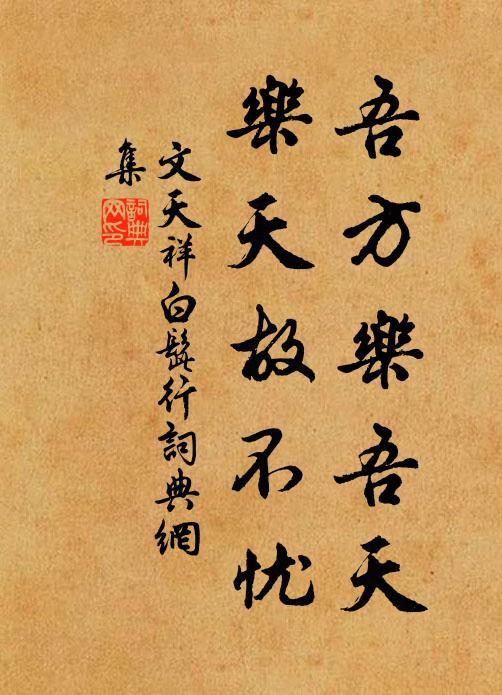 吾方樂吾天
樂天故不忧
文天祥白髭行詞典網
集
詞典
网印